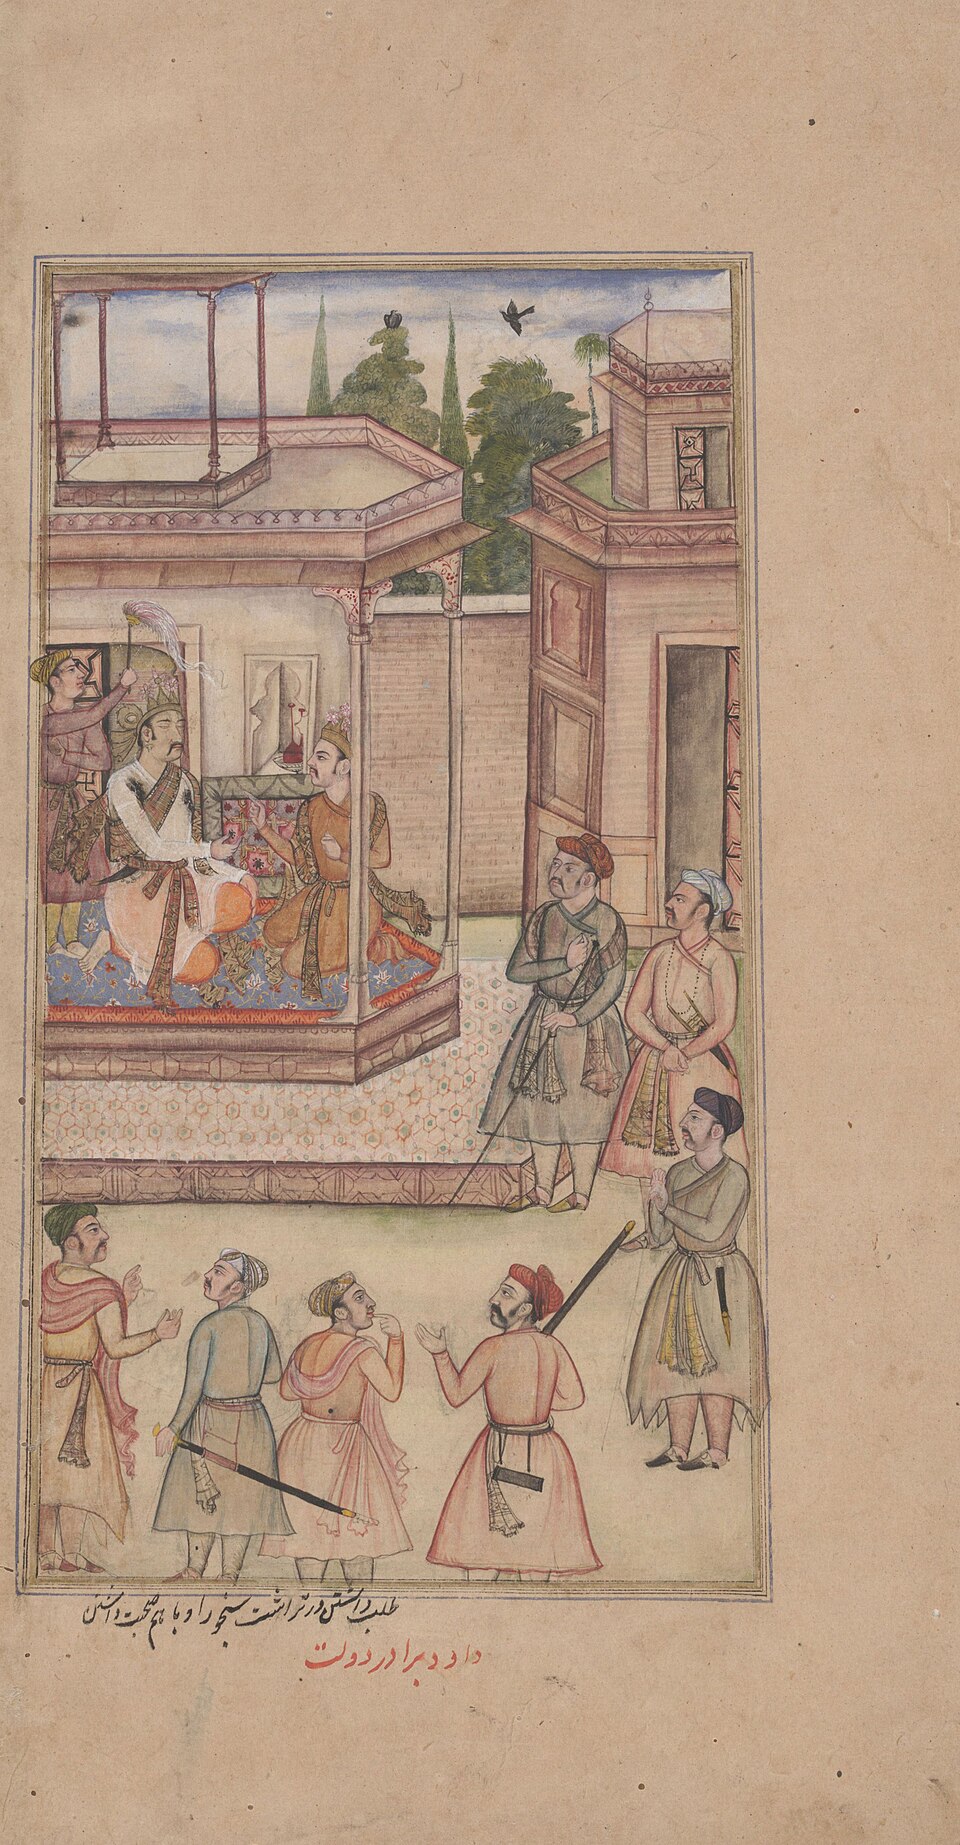 طلب داشتن درتراشت سنجور را و با هم صحبت داشتن
داود برادر دولت